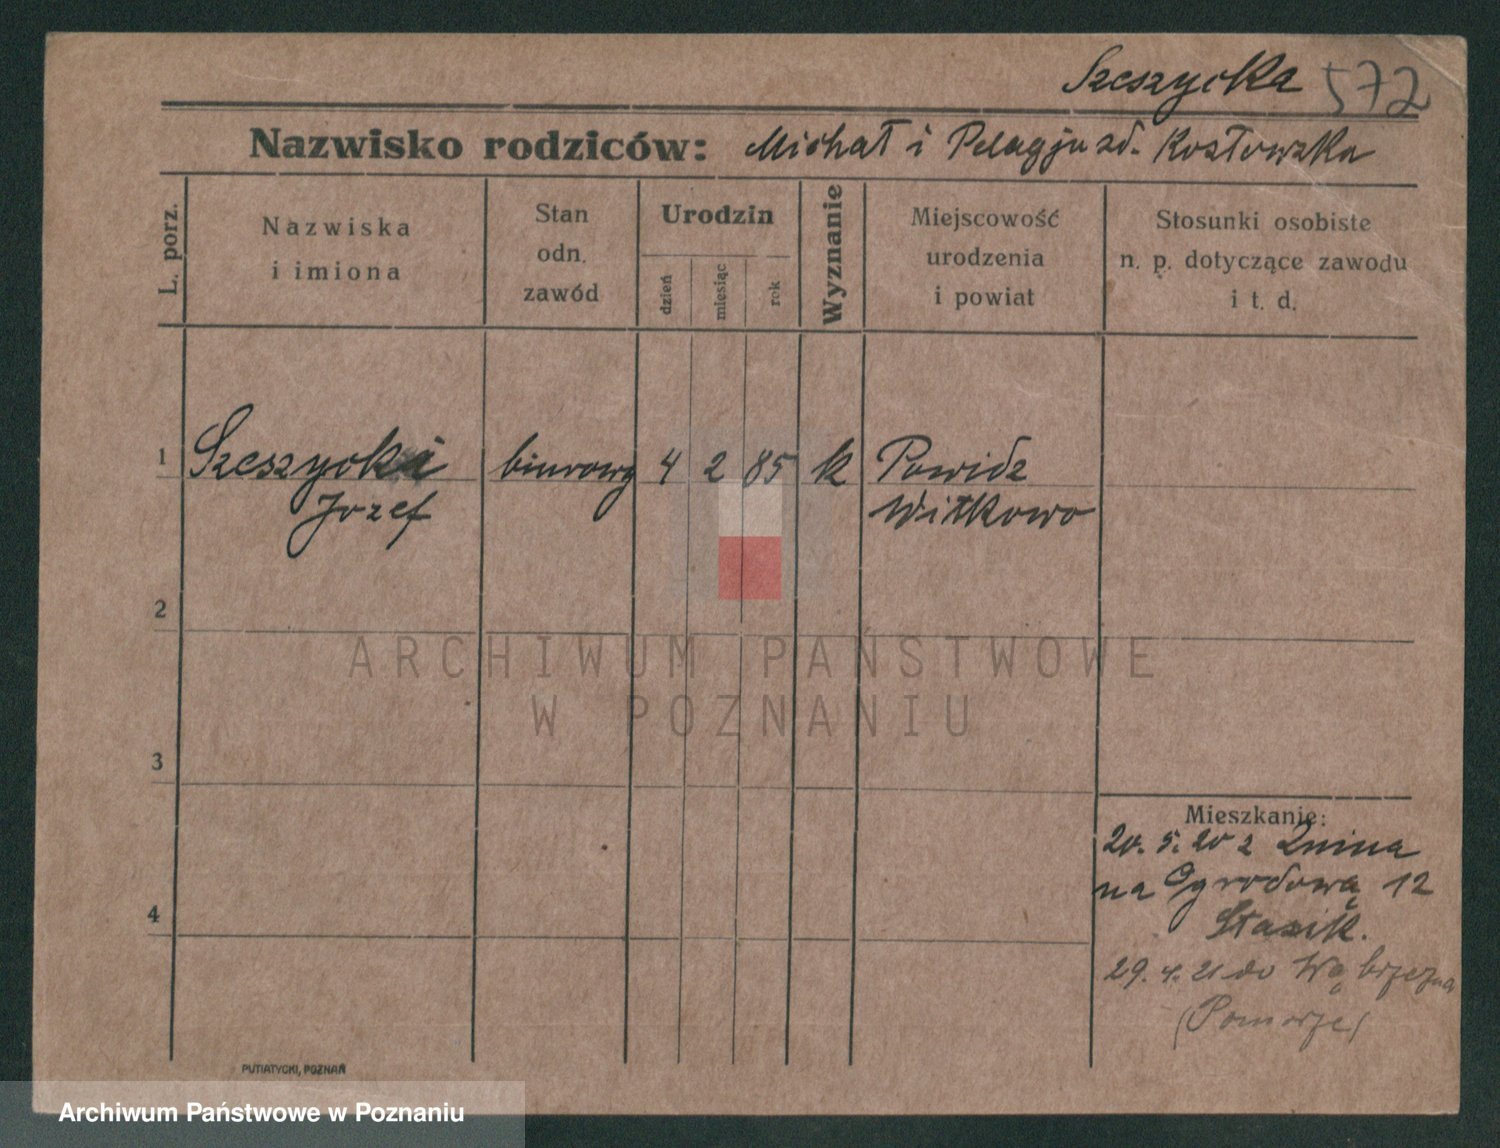 Szeszycka 572
Nazwisko rodziców: Michał i Pelagja zd. Kosłowska
L. porz.
Nazwiska
i imiona
Stan
odn.
zawód
Urodzin
dzień
miesiąc
rok
Wyznanie
Miejscowość
urodzenia
i powiat
Stosunki osobiste
n. p. dotyczące zawodu
i t. d.
1 Szeszycki biurowy 4 2 85 k Powidz
Józef Witkowo
2
3
4
Mieszkanie:
20. 5. 20 z Żnina
na Ogrodową 12
Stasik.
29. 4. 21 do Wąbrzeźna
(Pomorze)
PUTIATYCKI, POZNAŃ
ARCHIWUM PAŃSTWOWE
W POZNANIU
Archiwum Państwowe w Poznaniu